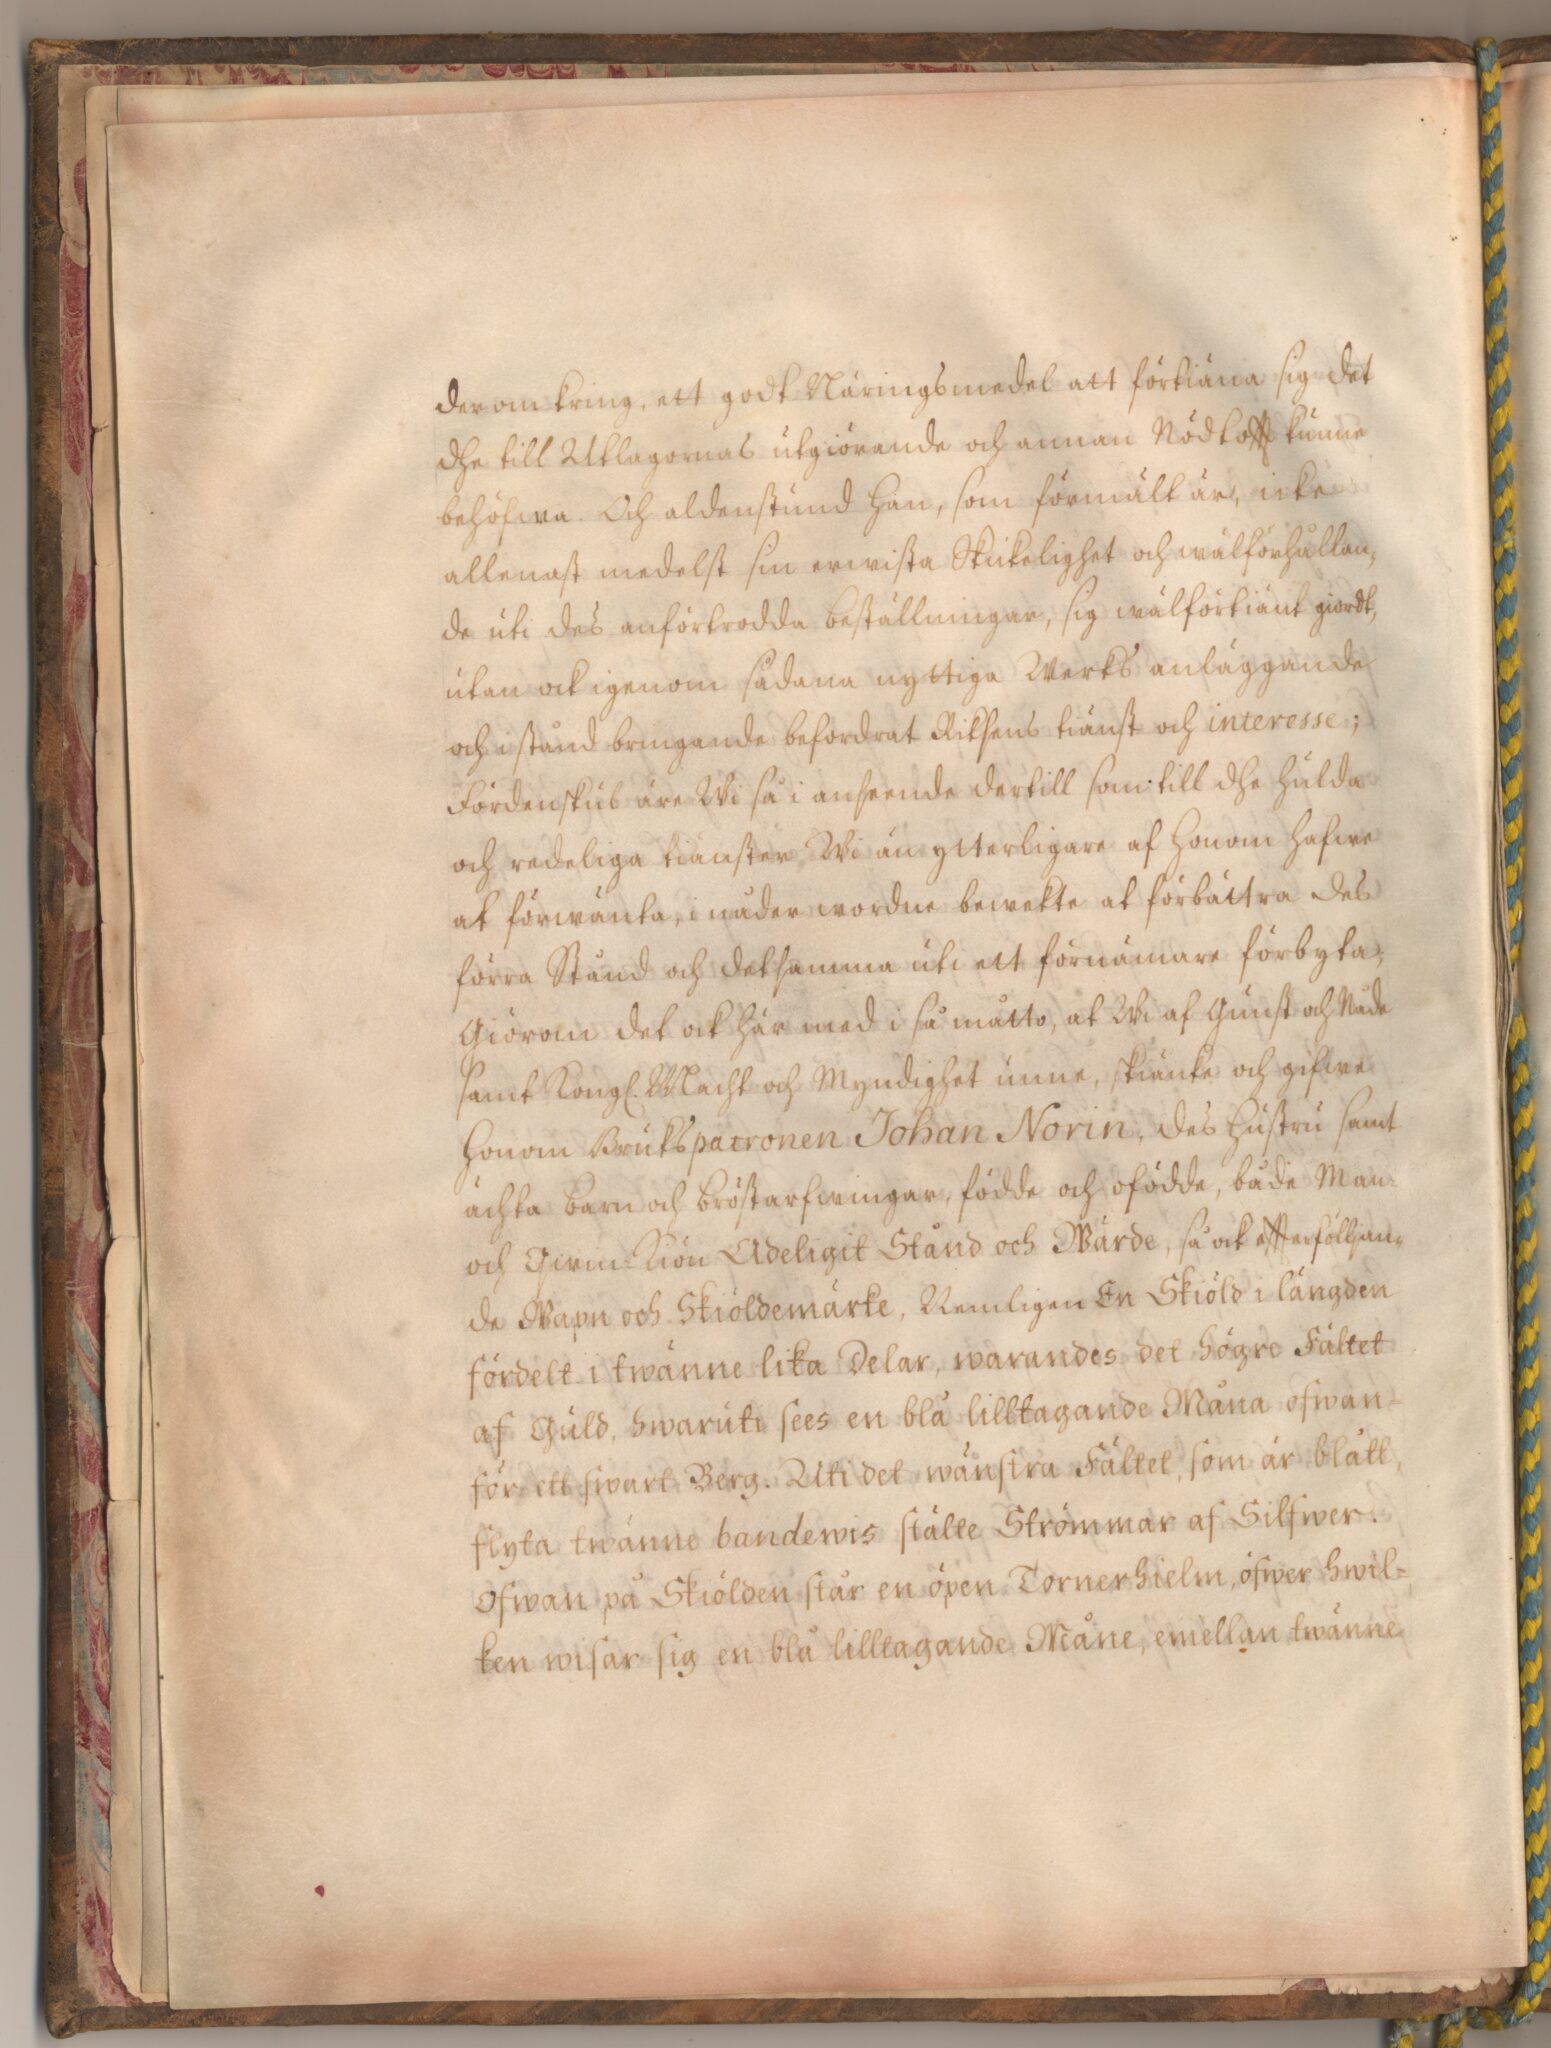 der omkring, ett godt Näringsmedel att förtiäna sig det
dhe till Utlagornas utgiörande och annan Nödtofft kunne
behöfwa. Och aldenstund Han, som förmält är, icke
allenast medelst sin erwista Skickelighet och wälförhållan,
de uti des anförtrodda beställningar, sig wälförtiänt giordt,
utan ock igenom sådana nyttiga Werks anläggande
och i stånd bringande befordrat Riksens tiänst och interesse;
Fördenskul äre Wi så i anseende dertill som till dhe hulda
och redeliga tiänster, Wi än ytterligare af Honom hafwe
at förwänta, i nåder wordne bewekte at förbättra des
förra Stånd och detsamma uti ett förnämare förbyta,
Giörom det ock här med i så måtto, at Wi af Gunst och Nåde
samt Kongl. Macht och Myndighet unne, skiänke och gifwe
Honom Brukspatronen Johan Norin, des Hustru samt
ächta barn och bröstarfwingar, födde och ofödde, både Man-
och Qwin-Kiön Adeligit Stånd och Wärde, så ock effterföllian-
de Wapn och Skiöldemärke, Nemligen En Skiöld i längden
fördelt i twänne lika Delar, warandes det högre Fältet
af Guld, hwaruti sees en blå tilltagande Måna ofwan-
för ett swart Berg. Uti det wänstra Fältet, som är blått,
flyta twänne bandewis stälte Strömmar af Silfwer.
Ofwan på Skiölden står en öpen Tornerhielm, öfwer hwil-
ken wisar sig en blå tilltagande Måne, emellan twänne